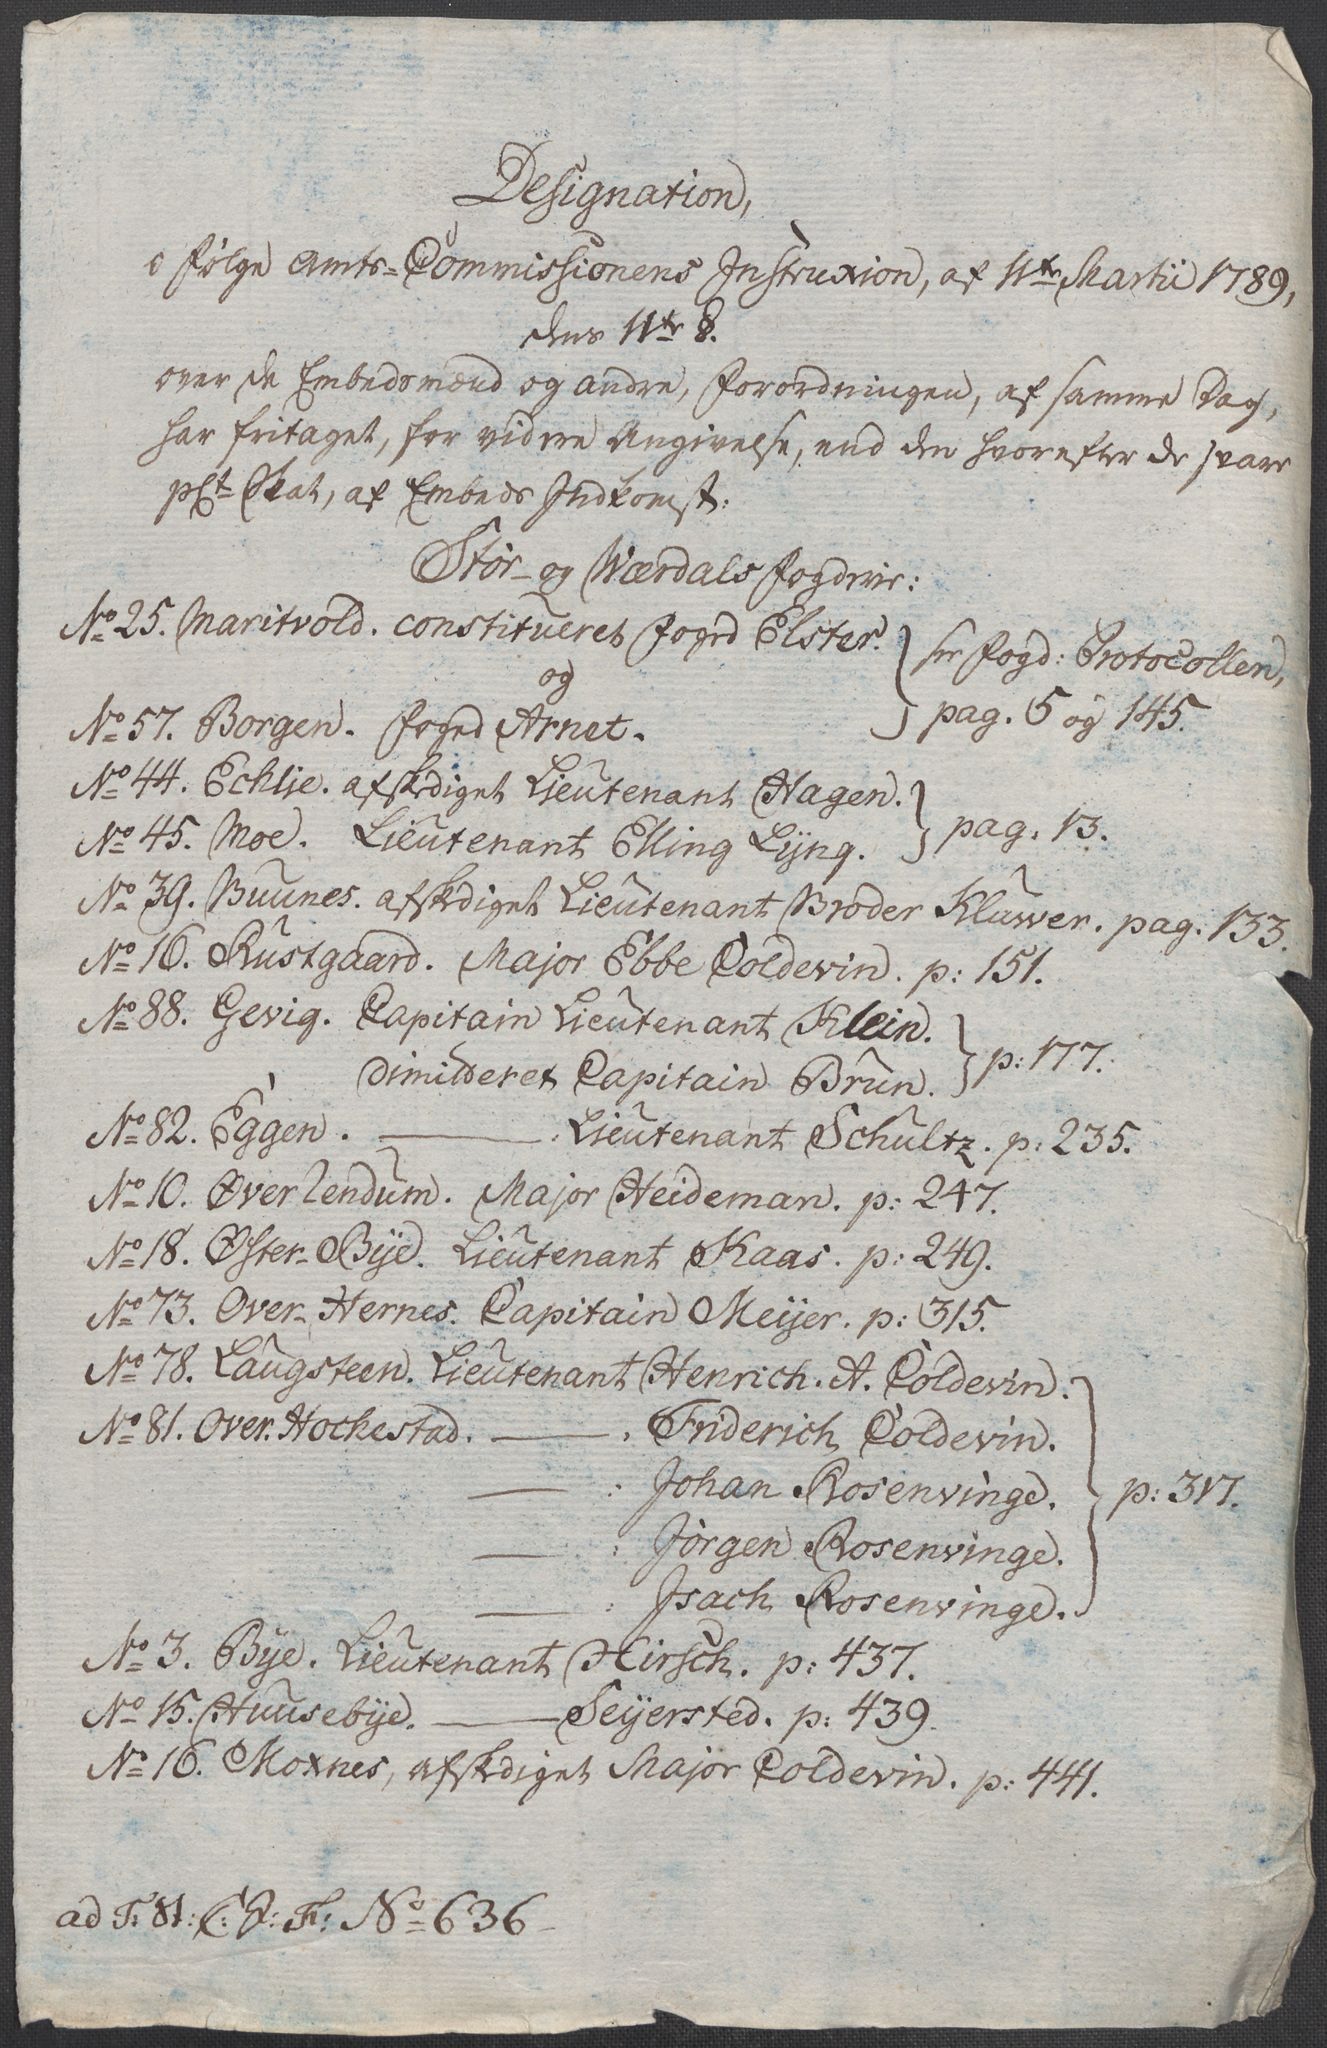 Designation,
i følge Amts-Commissionens Instruxion, af 11te Martii 1789,
dens 11te §.
over de Embedsmænd og andre, forordningen, af samme Dag,
har fritaget, for videre Angivelse, end den hvorefter de svare
pCt Skat, af Embeds Indkomst:
Stør- og Wærdals fogderie:
No 25. Maritvold. constitueret foged Elster. } see fogd: Protocollen,
og
No 57. Borgen. foged Arnet. } pag. 5 og 145.
No 44. Echlje. afskediget Lieutenant Hagen. }
No 45. Moe. Lieutenant Elling Lÿng. } pag. 13.
No 39. Buunes. afskediget Lieutenant Broder Kluwer. pag. 133.
No 16. Rustgaard. Major Ebbe Coldevin. p: 151.
No 88. Gevig. Capitain Lieutenant Klein. }
dimitteret Capitain Brun. } p: 177.
No 82. Eggen. ——— . Lieutenant Schultz. p: 235.
No 10. Øver lendum. Major Heideman. p: 247.
No 18. Øster-Bÿe. Lieutenant Kaas. p: 249.
No 73. Over-Hernes. Capitain Meÿer. p: 315.
No 78. Laugsteen. Lieutenant Henrich. A. Coldevin. }
No 81. Over. Hockestad. ——— . Friderich Coldevin.
—— : Johan Rosenvinge. } p: 317.
—— : Jörgen Rosenvinge.
—— : Isach Rosenvinge. }
No 3. Bÿe. Lieutenant Hirsch. p: 437.
No 15. Huusebÿe. ——— Seÿersted. p: 439.
No 16. Moxnes, afskediget Major Coldevin. p: 441.
ad F. 81: No 636